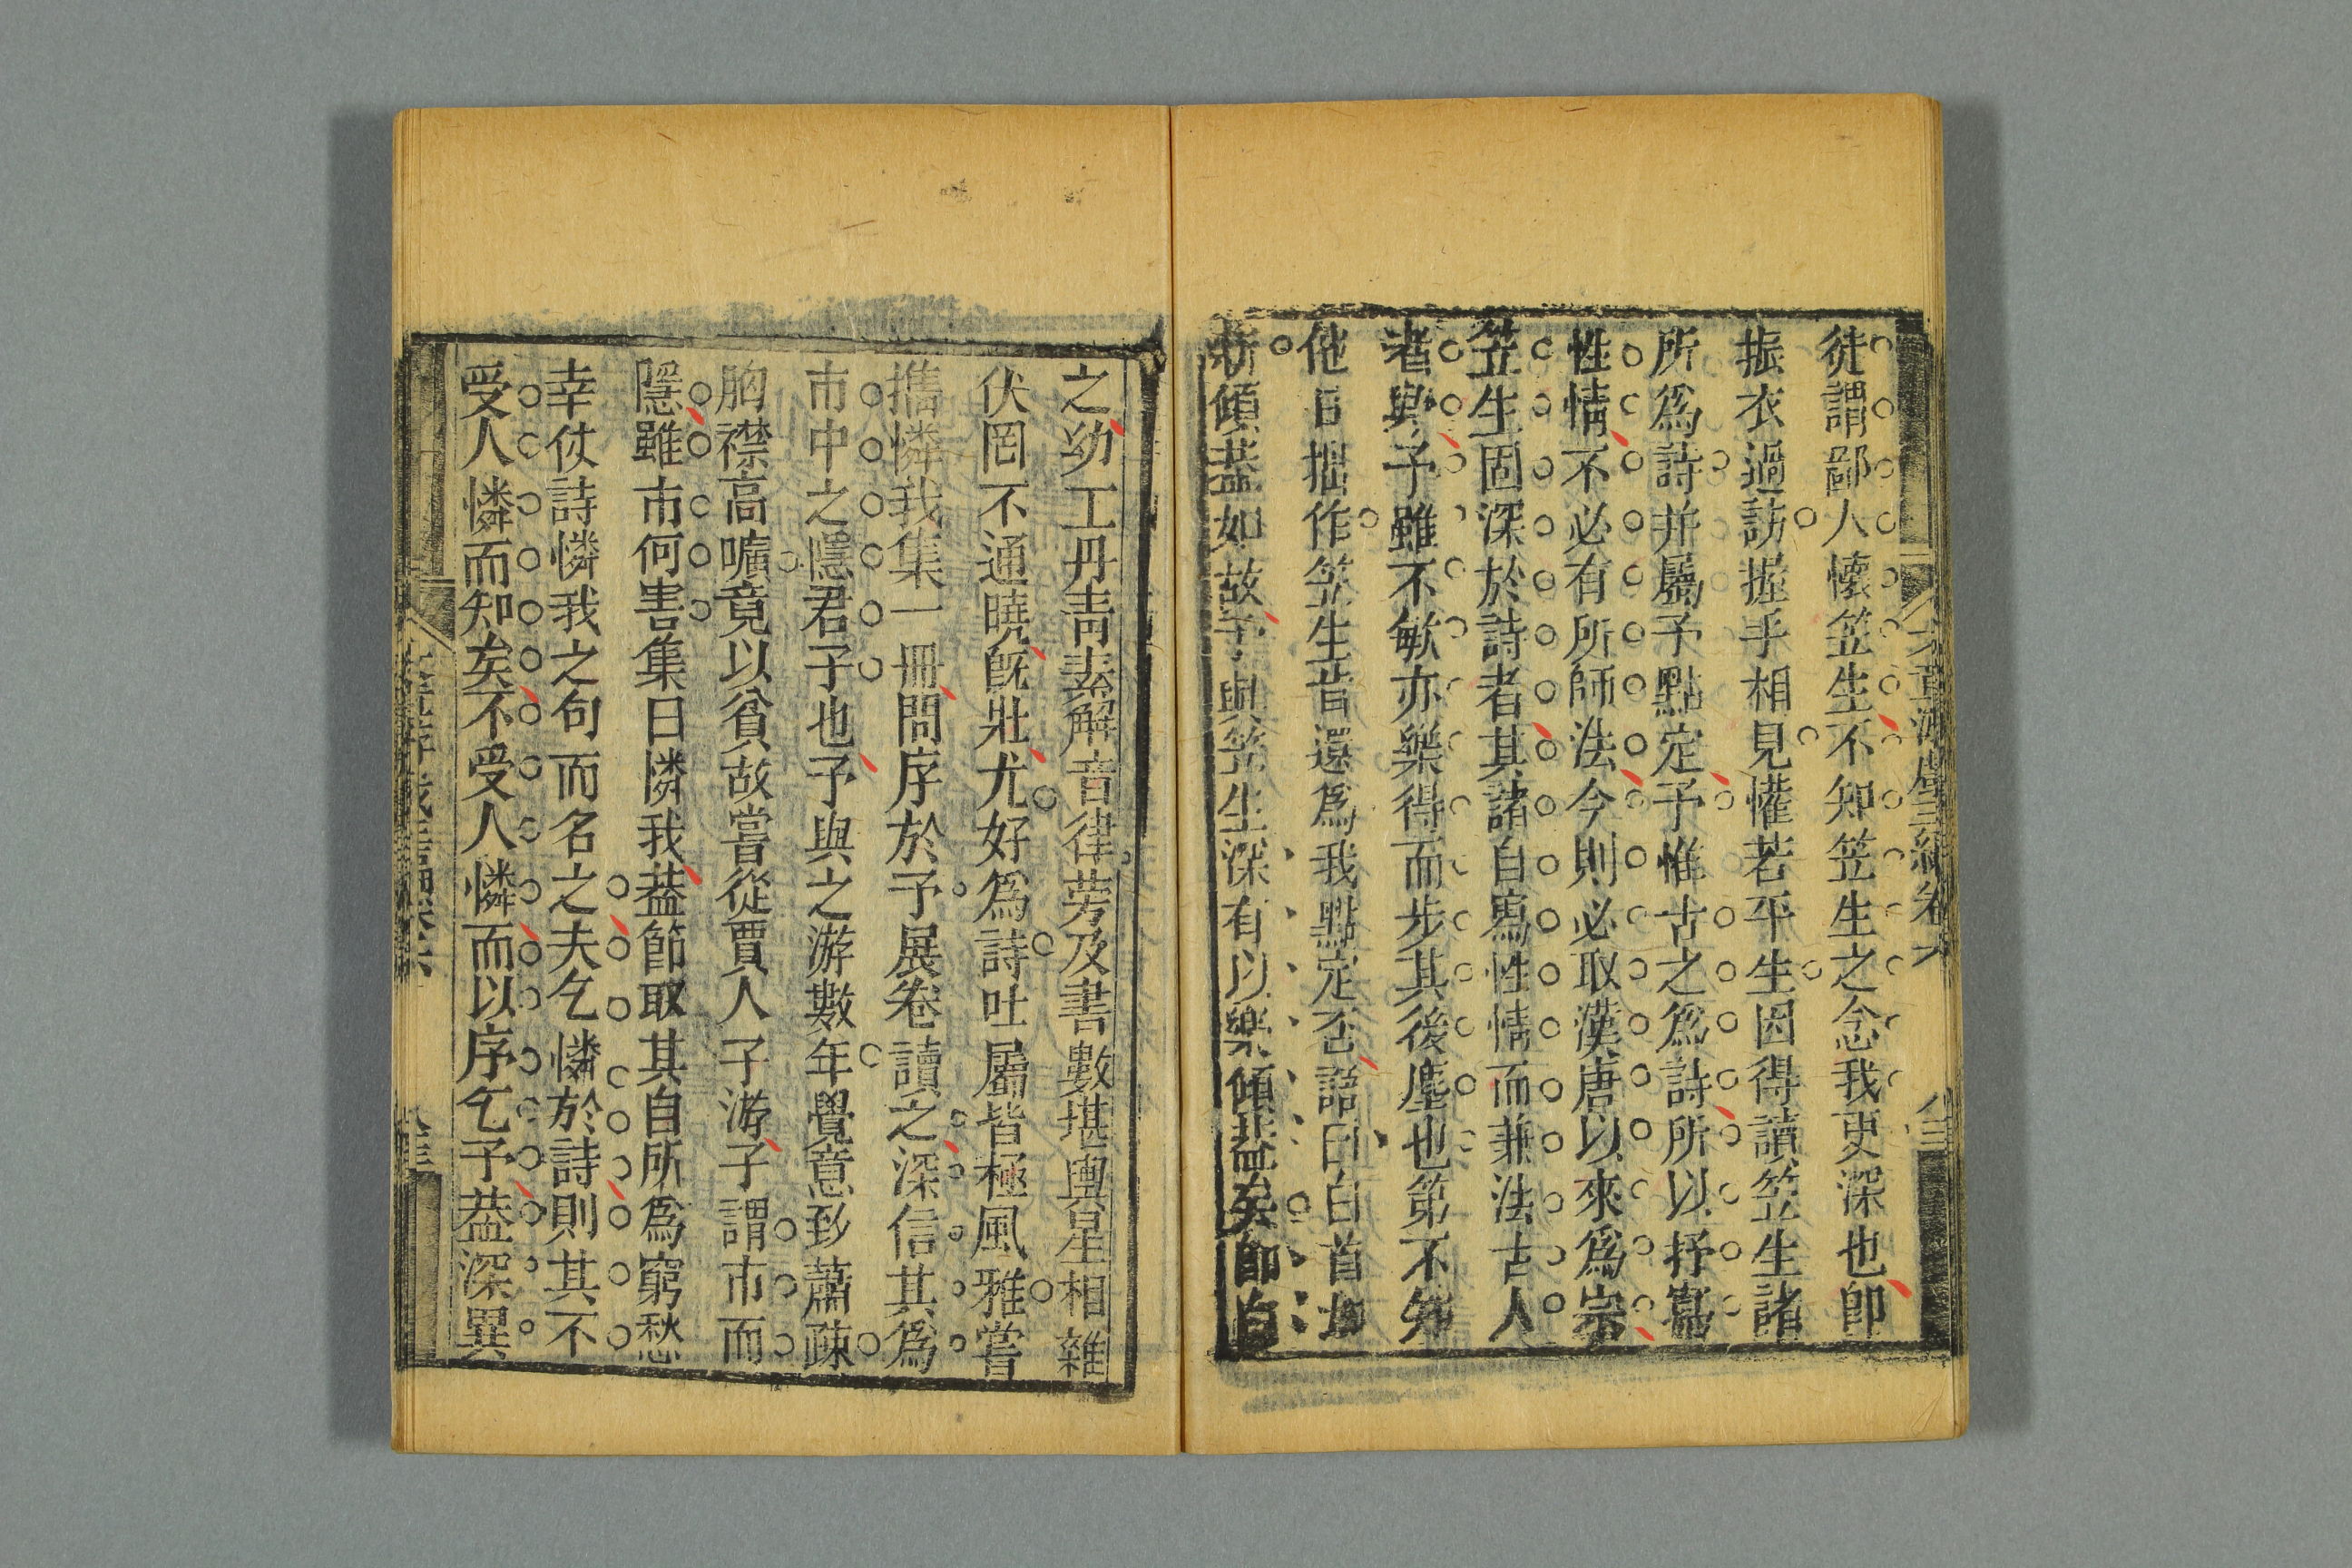 徒謂鄙人懷笠生不知笠生之念我更深也卽
振衣過訪握手相見懽若平生因得讀笠生諸
所爲詩并屬予點定予惟古之爲詩所以抒寫
性情不必有所師法今則必取漢唐以來爲宗
笠生固深於詩者其諸自寫性情而兼法古人
者與予雖不敏亦樂得而步其後塵也第不知
他日拙作笠生肯還爲我點定否語曰白首如
新傾蓋如故予與笠生深有以樂傾蓋矣卽白
之幼工丹青素解音律旁及書數堪輿星相雜
伏罔不通曉旣壯尤好爲詩吐屬皆極風雅嘗
攜憐我集一冊問序於予展卷讀之深信其爲
市中之隱君子也予與之游數年覺意致蕭疎
胸襟高曠竟以貧故嘗從賈人子游子謂市而
隱雖市何害集曰憐我葢節取其自所爲窮愁
幸仗詩憐我之句而名之夫乞憐於詩則其不
受人憐而知矣不受人憐而以序乞予葢深異